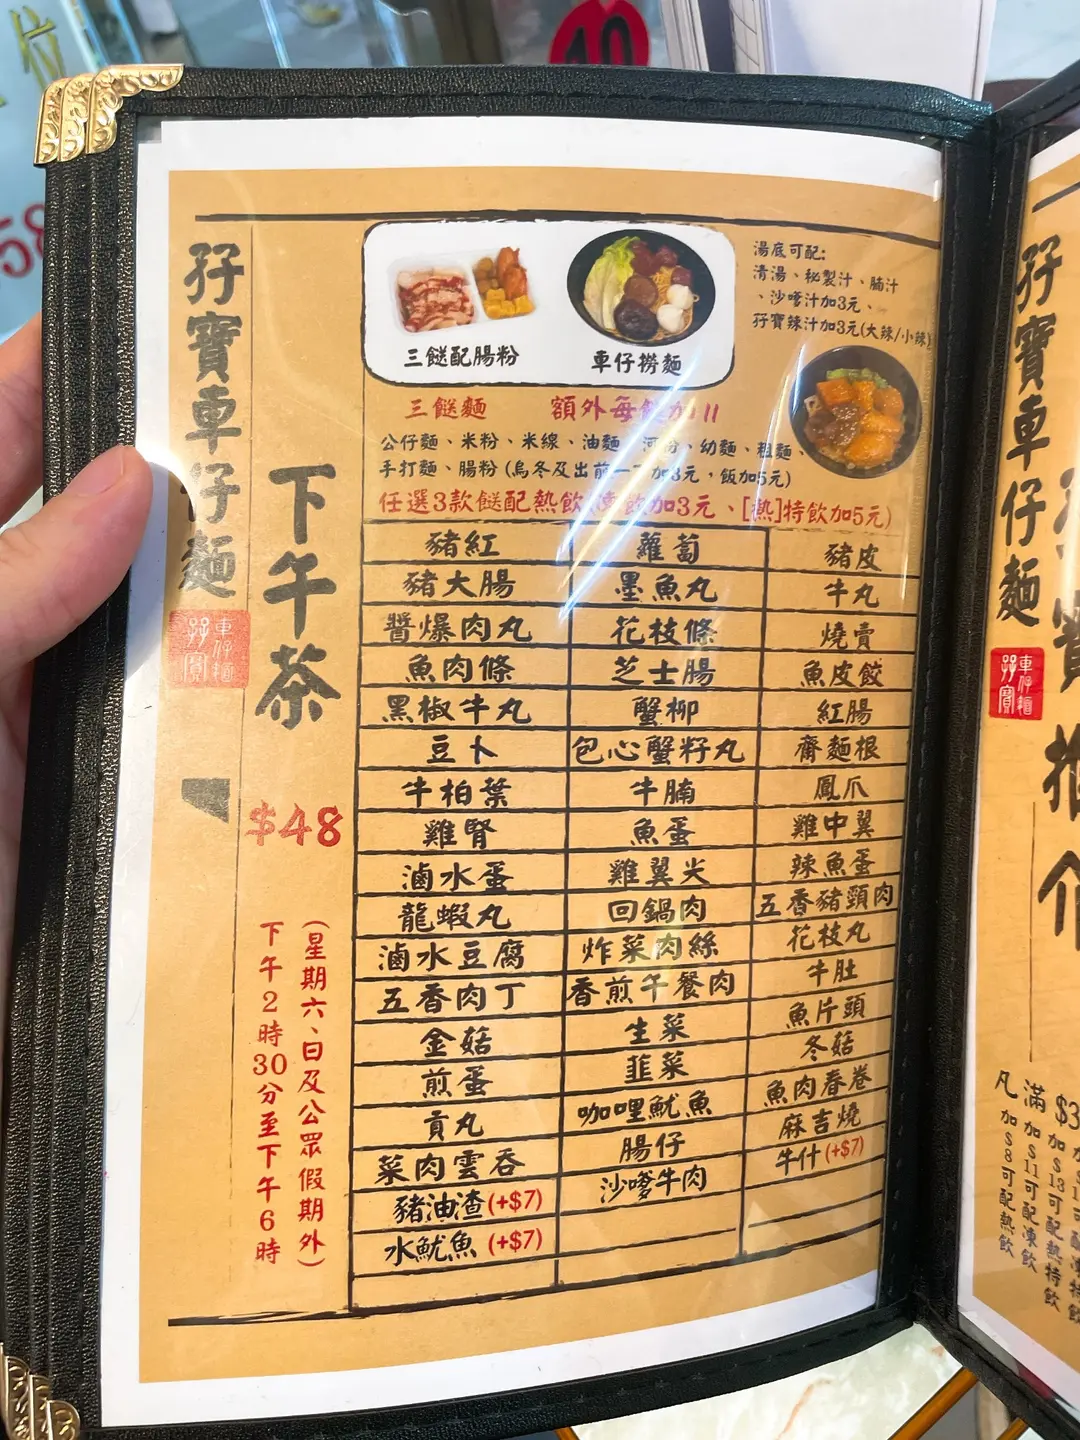 孖寶車仔麵
車仔麵
孖寶
下午茶
$48
(星期六、日及公眾假期外)
下午2時30分至下午6時
三餸配腸粉
車仔撈麵
湯底可配:
清湯、秘製汁、腩汁
、沙嗲汁加3元、
孖寶辣汁加3元(大辣/小辣)
三餸麵
額外每餸加11
公仔麵、米粉、米線、油麵、河粉、幼麵、粗麵、
手打麵、腸粉(烏冬及出前一丁加3元，飯加5元)
任選3款餸配熱飲(凍飲加3元、[熱]特飲加5元)
豬紅
蘿蔔
豬皮
豬大腸
墨魚丸
牛丸
醬爆肉丸
花枝條
燒賣
魚肉條
芝士腸
魚皮餃
黑椒牛丸
蟹柳
紅腸
豆卜
包心蟹籽丸
齋麵根
牛柏葉
牛腩
鳳爪
雞腎
魚蛋
雞中翼
滷水蛋
雞翼尖
辣魚蛋
龍蝦丸
回鍋肉
五香豬頸肉
滷水豆腐
炸菜肉絲
花枝丸
五香肉丁
香煎午餐肉
牛肚
金菇
生菜
魚片頭
煎蛋
韮菜
冬菇
貢丸
咖哩魷魚
魚肉春卷
菜肉雲吞
腸仔
麻吉燒
豬油渣(+$7)
沙嗲牛肉
牛什(+$7)
水魷魚 (+$7)
孖寶車仔麵
車仔麵
孖寶
寶推介
加$8可配熱飲
加$11可配凍飲
加$13可配熱特飲
凡滿$3